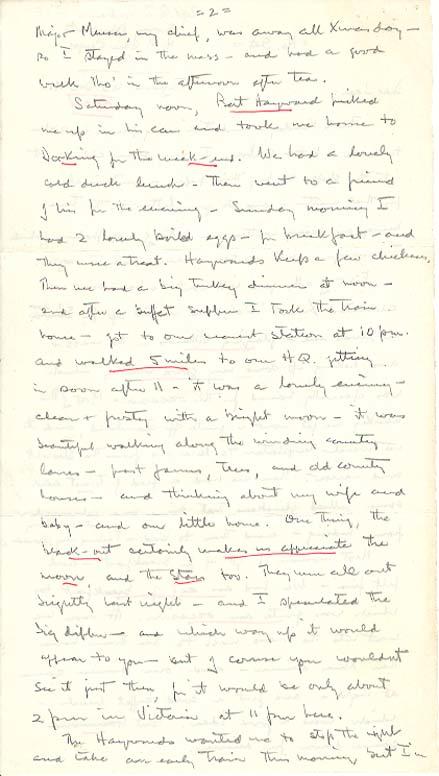 = 2 =
Major , my chief, was away all Xmas day —
so I stayed in the mess — and had a good
walk tho' in the afternoon after tea.
Saturday noon, Bert Hayward picked
me up in his car and took me home to
Dorking for the week-end. We had a lovely
cold duck lunch — Then went to a friend
of his for the evening — Sunday morning I
had 2 lovely boiled eggs — for breakfast — and
they were a treat. Haywards keep a few chickens.
Then we had a big turkey dinner at noon —
and after a buffet supper I took the train
home — got to our nearest station at 10 pm.
and walked 5 miles to our H.Q. getting
in soon after 11 — it was a lovely evening —
clear + frosty with a bright moon — it was
beautiful walking along the winding country
lanes — past farms, trees, and old country
houses — and thinking about my wife and
baby — and our little home. One thing, the
black-out certainly makes us appreciate the
moon, and the stars too. They were all out
brightly last night — and I speculated the
big dipper — and which way up it would
appear to you — but of course you wouldn't
see it just then, for it would be only about
2 pm in Victoria at 11 pm here.
The Haywards wanted me to stop the night
and take an early train this morning but I'm